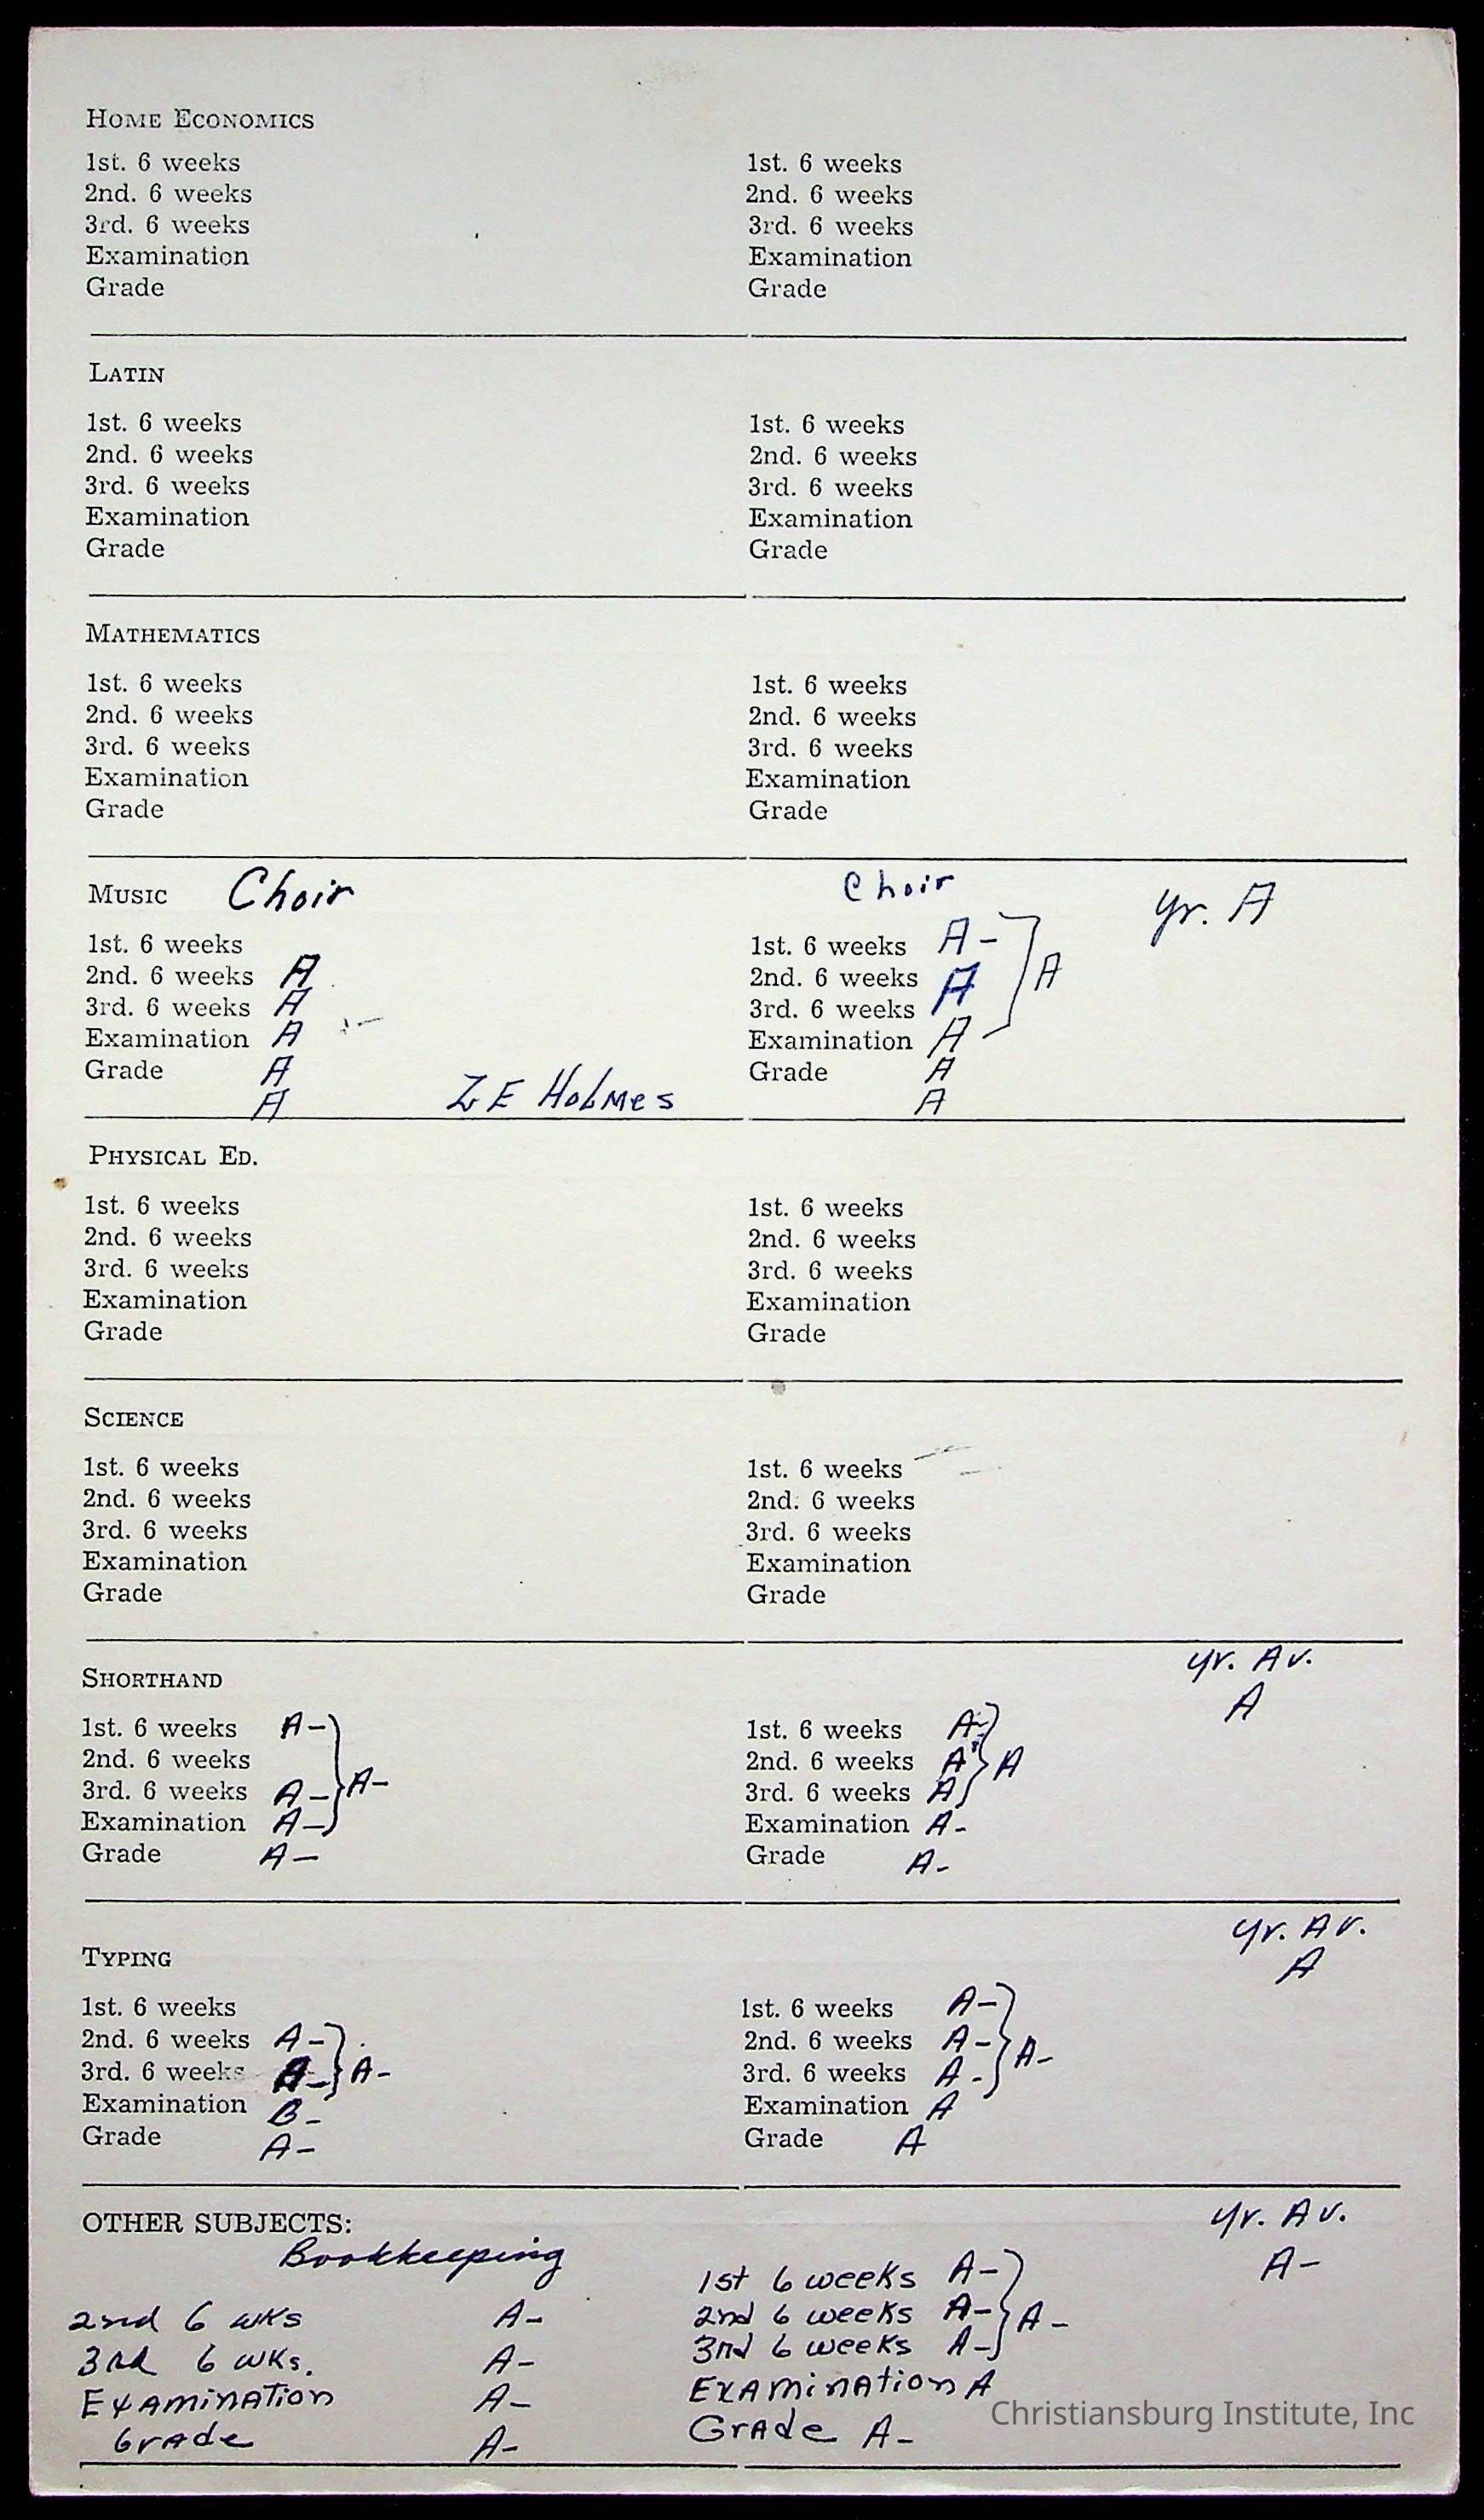 HOME ECONOMICS
1st. 6 weeks 1st. 6 weeks
2nd. 6 weeks 2nd. 6 weeks
3rd. 6 weeks 3rd. 6 weeks
Examination Examination
Grade Grade
LATIN
1st. 6 weeks 1st. 6 weeks
2nd. 6 weeks 2nd. 6 weeks
3rd. 6 weeks 3rd. 6 weeks
Examination Examination
Grade Grade
MATHEMATICS
1st. 6 weeks 1st. 6 weeks
2nd. 6 weeks 2nd. 6 weeks
3rd. 6 weeks 3rd. 6 weeks
Examination Examination
Grade Grade
MUSIC Choir Choir yr. A
1st. 6 weeks 1st. 6 weeks A-
2nd. 6 weeks A 2nd. 6 weeks A A
3rd. 6 weeks A 3rd. 6 weeks
Examination A Examination A
Grade A Grade A
A Z E Holmes A
PHYSICAL ED.
1st. 6 weeks 1st. 6 weeks
2nd. 6 weeks 2nd. 6 weeks
3rd. 6 weeks 3rd. 6 weeks
Examination Examination
Grade Grade
SCIENCE
1st. 6 weeks 1st. 6 weeks
2nd. 6 weeks 2nd. 6 weeks
3rd. 6 weeks 3rd. 6 weeks
Examination Examination
Grade Grade
SHORTHAND yr. Av. A
1st. 6 weeks A- 1st. 6 weeks A-
2nd. 6 weeks 2nd. 6 weeks A A
3rd. 6 weeks A- A- 3rd. 6 weeks A
Examination A- Examination A-
Grade A- Grade A-
TYPING yr. Av. A
1st. 6 weeks 1st. 6 weeks A-
2nd. 6 weeks A- 2nd. 6 weeks A- A-
3rd. 6 weeks A- A- 3rd. 6 weeks A-
Examination B- Examination A
Grade A- Grade A
OTHER SUBJECTS: yr. Av.
Bookkeeping 1st 6 weeks A- A-
2nd 6 wks A- 2nd 6 weeks A- A-
3rd 6 wks. A- 3rd 6 weeks A-
Examination A- Examination A
Grade A- Grade A-
Christiansburg Institute, Inc